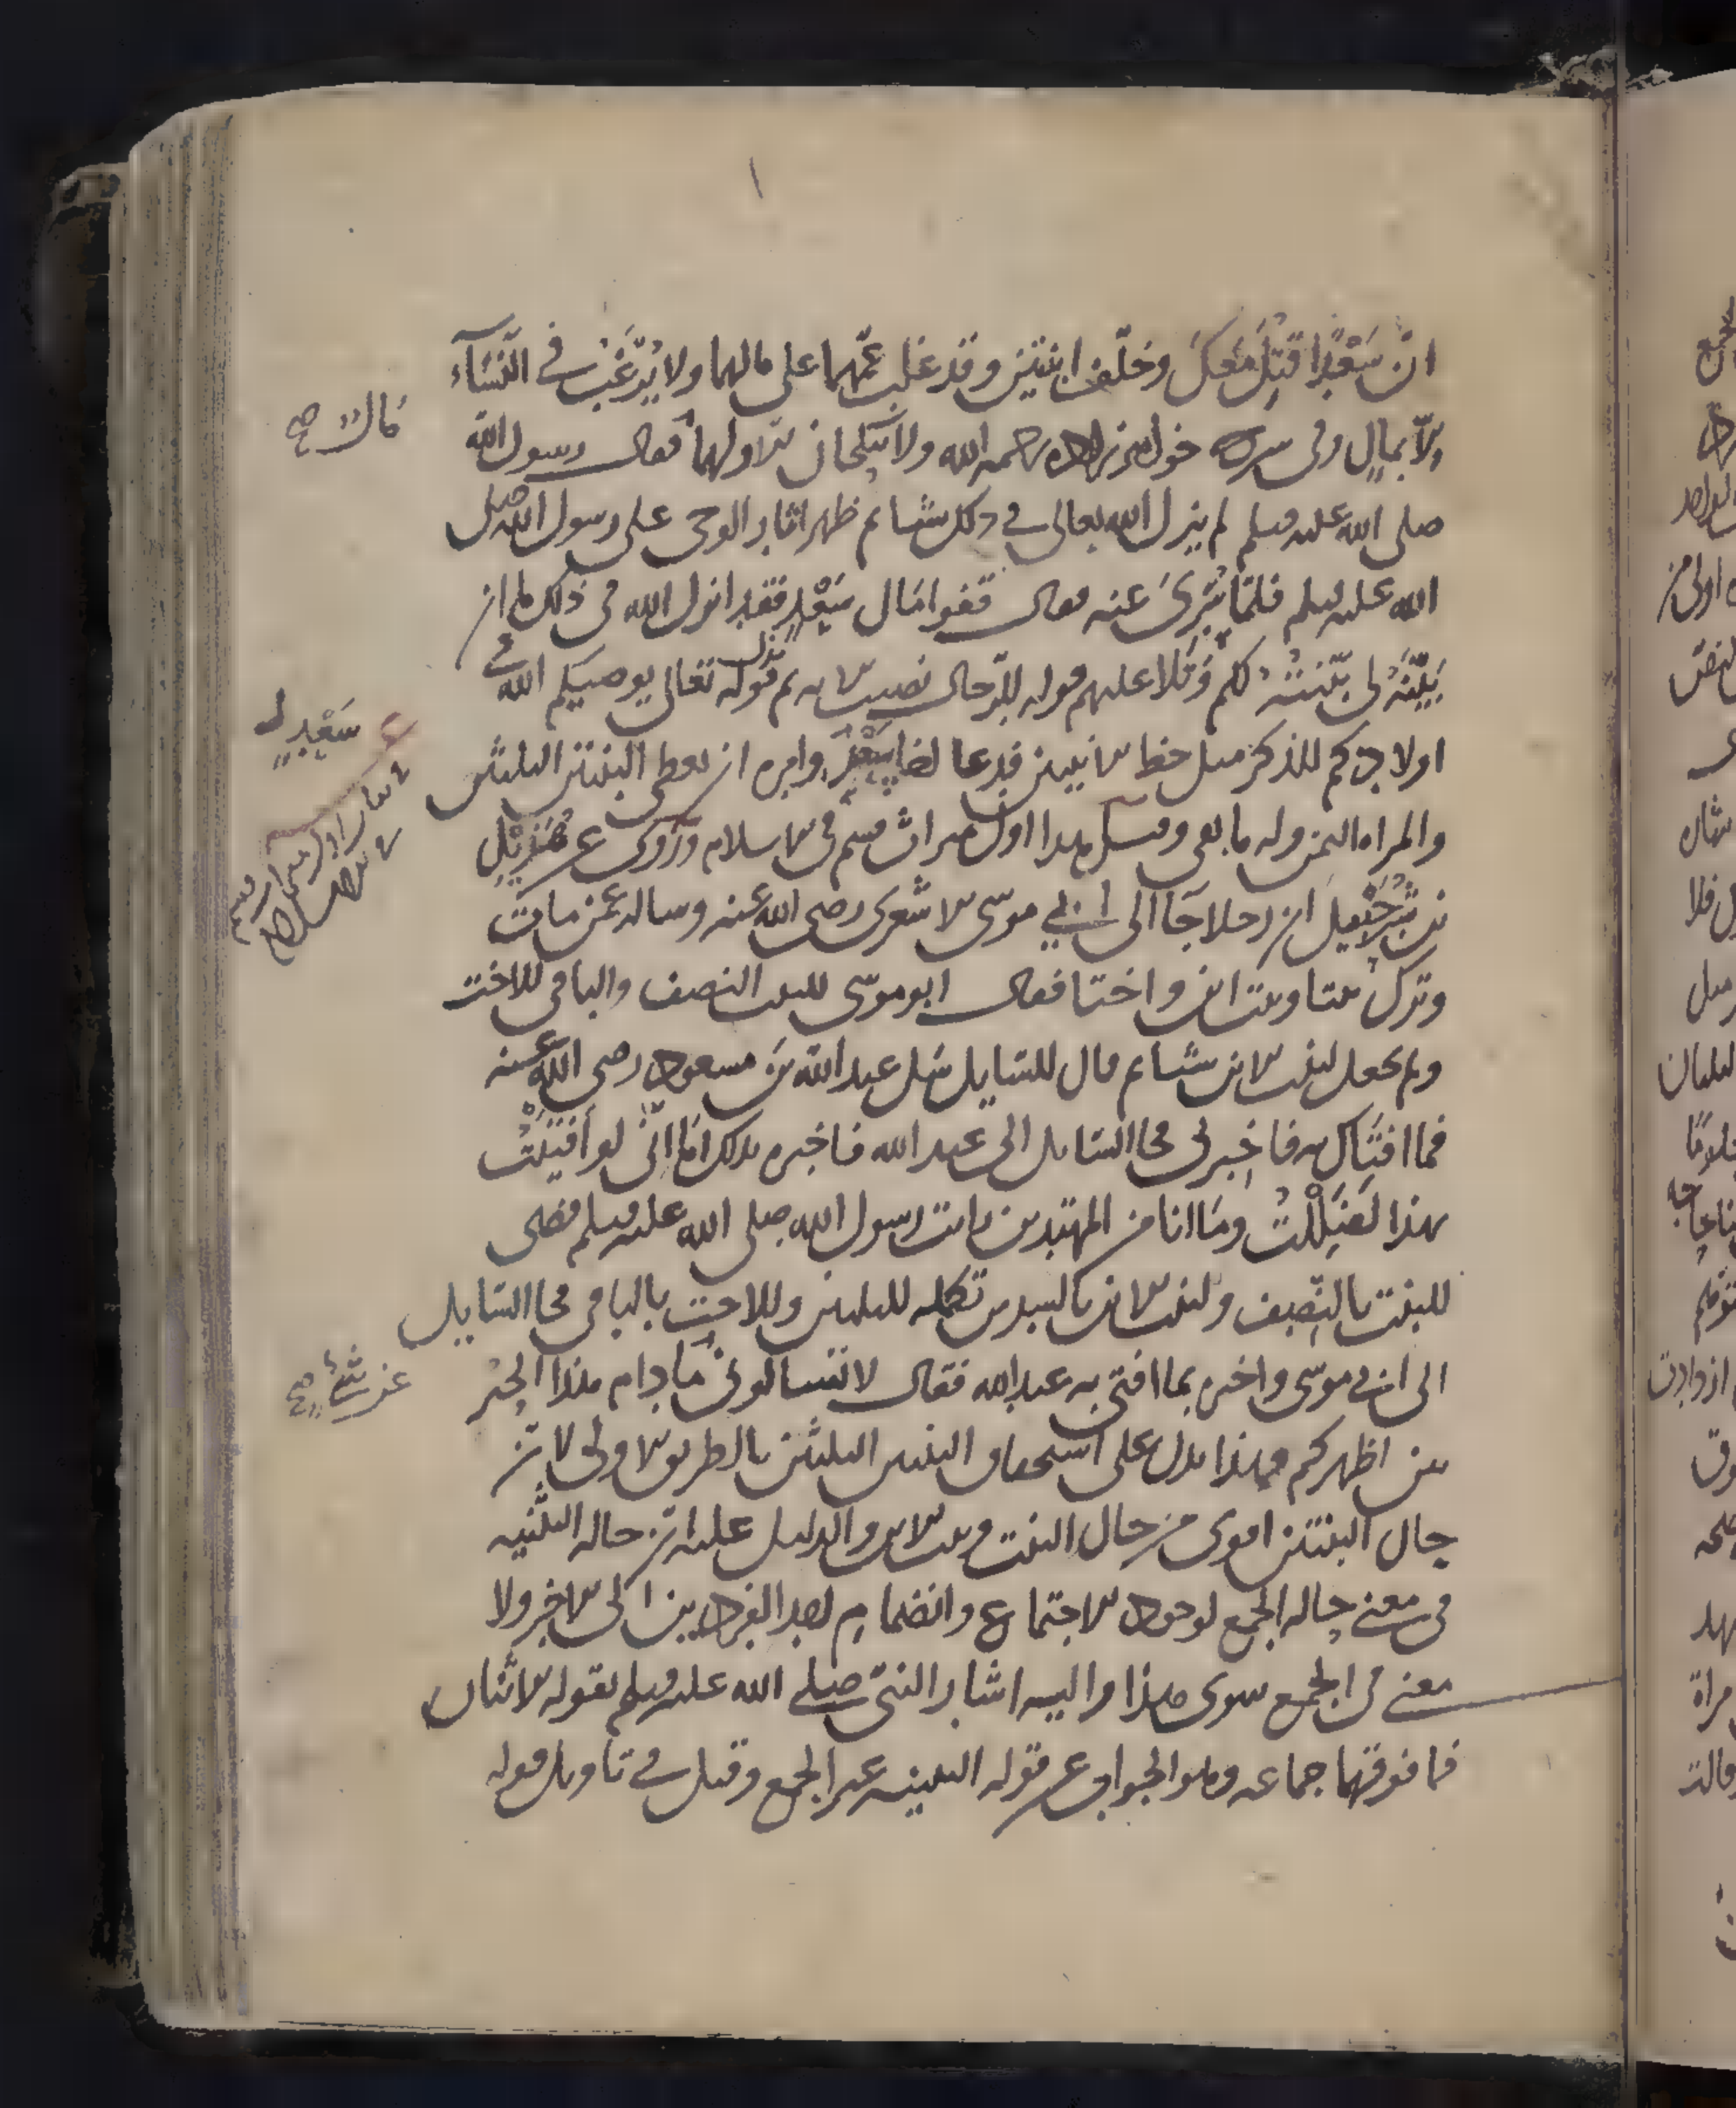 ان سعدا قتل معك وخلف ابنتين وقد غلب عمهما على مالهما ولا يرغب في النساء
الا بمال وفي شرح خواهر زاده رحمه الله ولا تنكحان الا ولهما مال فقال رسول الله
صلى الله عليه وسلم لم ينزل الله تعالى في ذلك شيئا ثم ظهر اثار الوحي على رسول الله صلى
الله عليه وسلم فلما سري عنه فقال قفوا مال سعد فقد انزل الله في ذلك ما ان
بينه لي بينته لكم وتلا عليهم قوله للرجال نصيب الاية ثم نزل قوله تعالى يوصيكم الله في
اولادكم للذكر مثل حظ الانثيين فدعا اخا سعد وامره ان يعطي البنتين الثلثين
والمراة الثمن وله ما بقي وقيل هذا اول ميراث قسم في الاسلام وروى عن هزيل
بن شرحبيل ان رجلا جا الى ابي موسى الاشعري رضي الله عنه وساله عمن مات
وترك بنتا وبنت ابن واختا فقال ابو موسى للبنت النصف والباقي للاخت
ولم يجعل لبنت الابن شيئا ثم قال للسايل سل عبد الله بن مسعود رضي الله عنه
فما افتاك به فاخبرني فجا السايل الى عبد الله فاخبره بذلك فقال اني لو افتيت
بهذا لضللت وما انا من المهتدين رايت رسول الله صلى الله عليه وسلم قضى
للبنت بالنصف ولبنت الابن بالسدس تكملة للثلثين وللاخت بالباقي فجا السايل
الى ابي موسى واخبره بما افتى به عبد الله فقال لا تسالوني ما دام هذا الحبر
بين اظهركم فهذا يدل على استحقاق البنتين الثلثين بالطريق الاولى لان
حال البنتين اقوى من حال البنت وبنت الابن والدليل عليه ان حالة التثنية
في معنى حالة الجمع لوجود الاجتماع وانضمام احد الفردين الى الاخر ولا
معنى في الجمع سوى هذا واليه اشار النبي صلى الله عليه وسلم بقوله الاثنان
فما فوقهما جماعة وهو الجواب عن قوله التثنية غير الجمع وقيل في تاويل قوله
مال صح
سعد
عن شيء صح